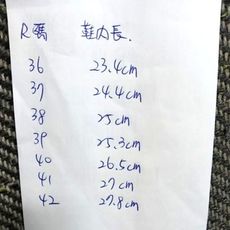 尺碼 鞋內長.
36 23.4cm
37 24.4cm
38 25cm
39 25.3cm
40 26.5cm
41 27cm
42 27.8cm